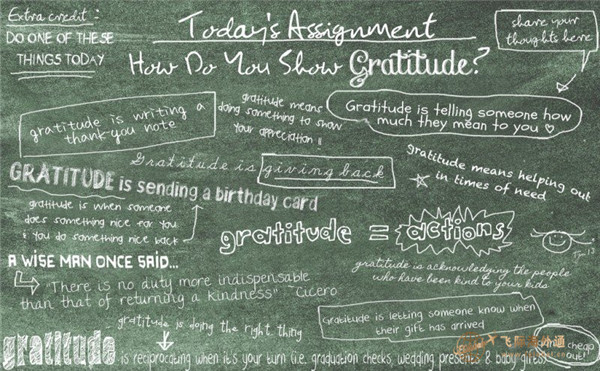 Extra credit:
DO ONE OF THESE
THINGS TODAY
Today's Assignment
How Do You Show Gratitude?
share your
thoughts here
gratitude is writing a
thank-you note
gratitude means
doing something to show
your appreciation !!
Gratitude is telling someone how
much they mean to you ♡
Gratitude is giving back
gratitude means helping out
in times of need
GRATITUDE is sending a birthday card
gratitude is when someone
does something nice for you
& you do something nice back
gratitude = actions
A WISE MAN ONCE SAID...
"There is no duty more indispensable
than that of returning a kindness" ~Cicero
gratitude is acknowledging the people
who have been kind to your kids
gratitude is doing the right thing
Gratitude is letting someone know when
their gift has arrived
gratitude is reciprocating when it's your turn (i.e. graduation checks, wedding presents & baby gifts)
cheap
out!!